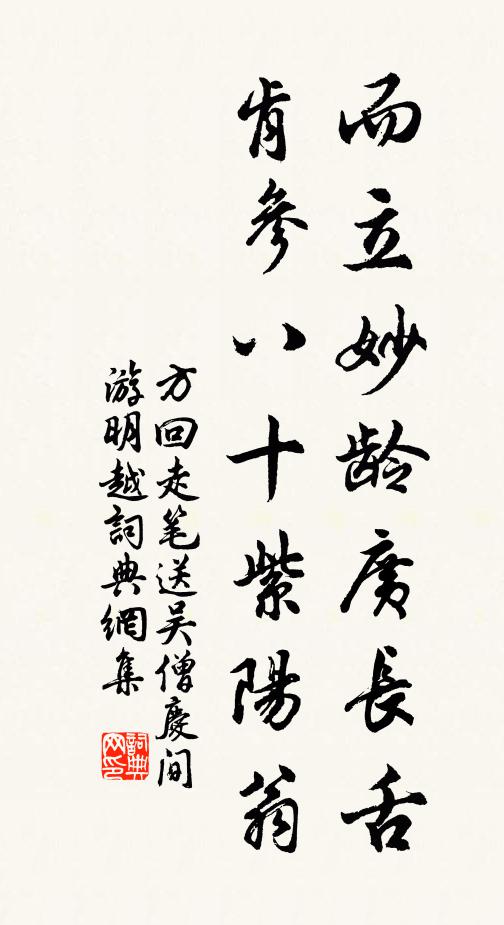 而立妙龄廣長舌
肯參八十紫陽翁
方回走笔送吴僧慶间
游明越詞典網集
詞典网印